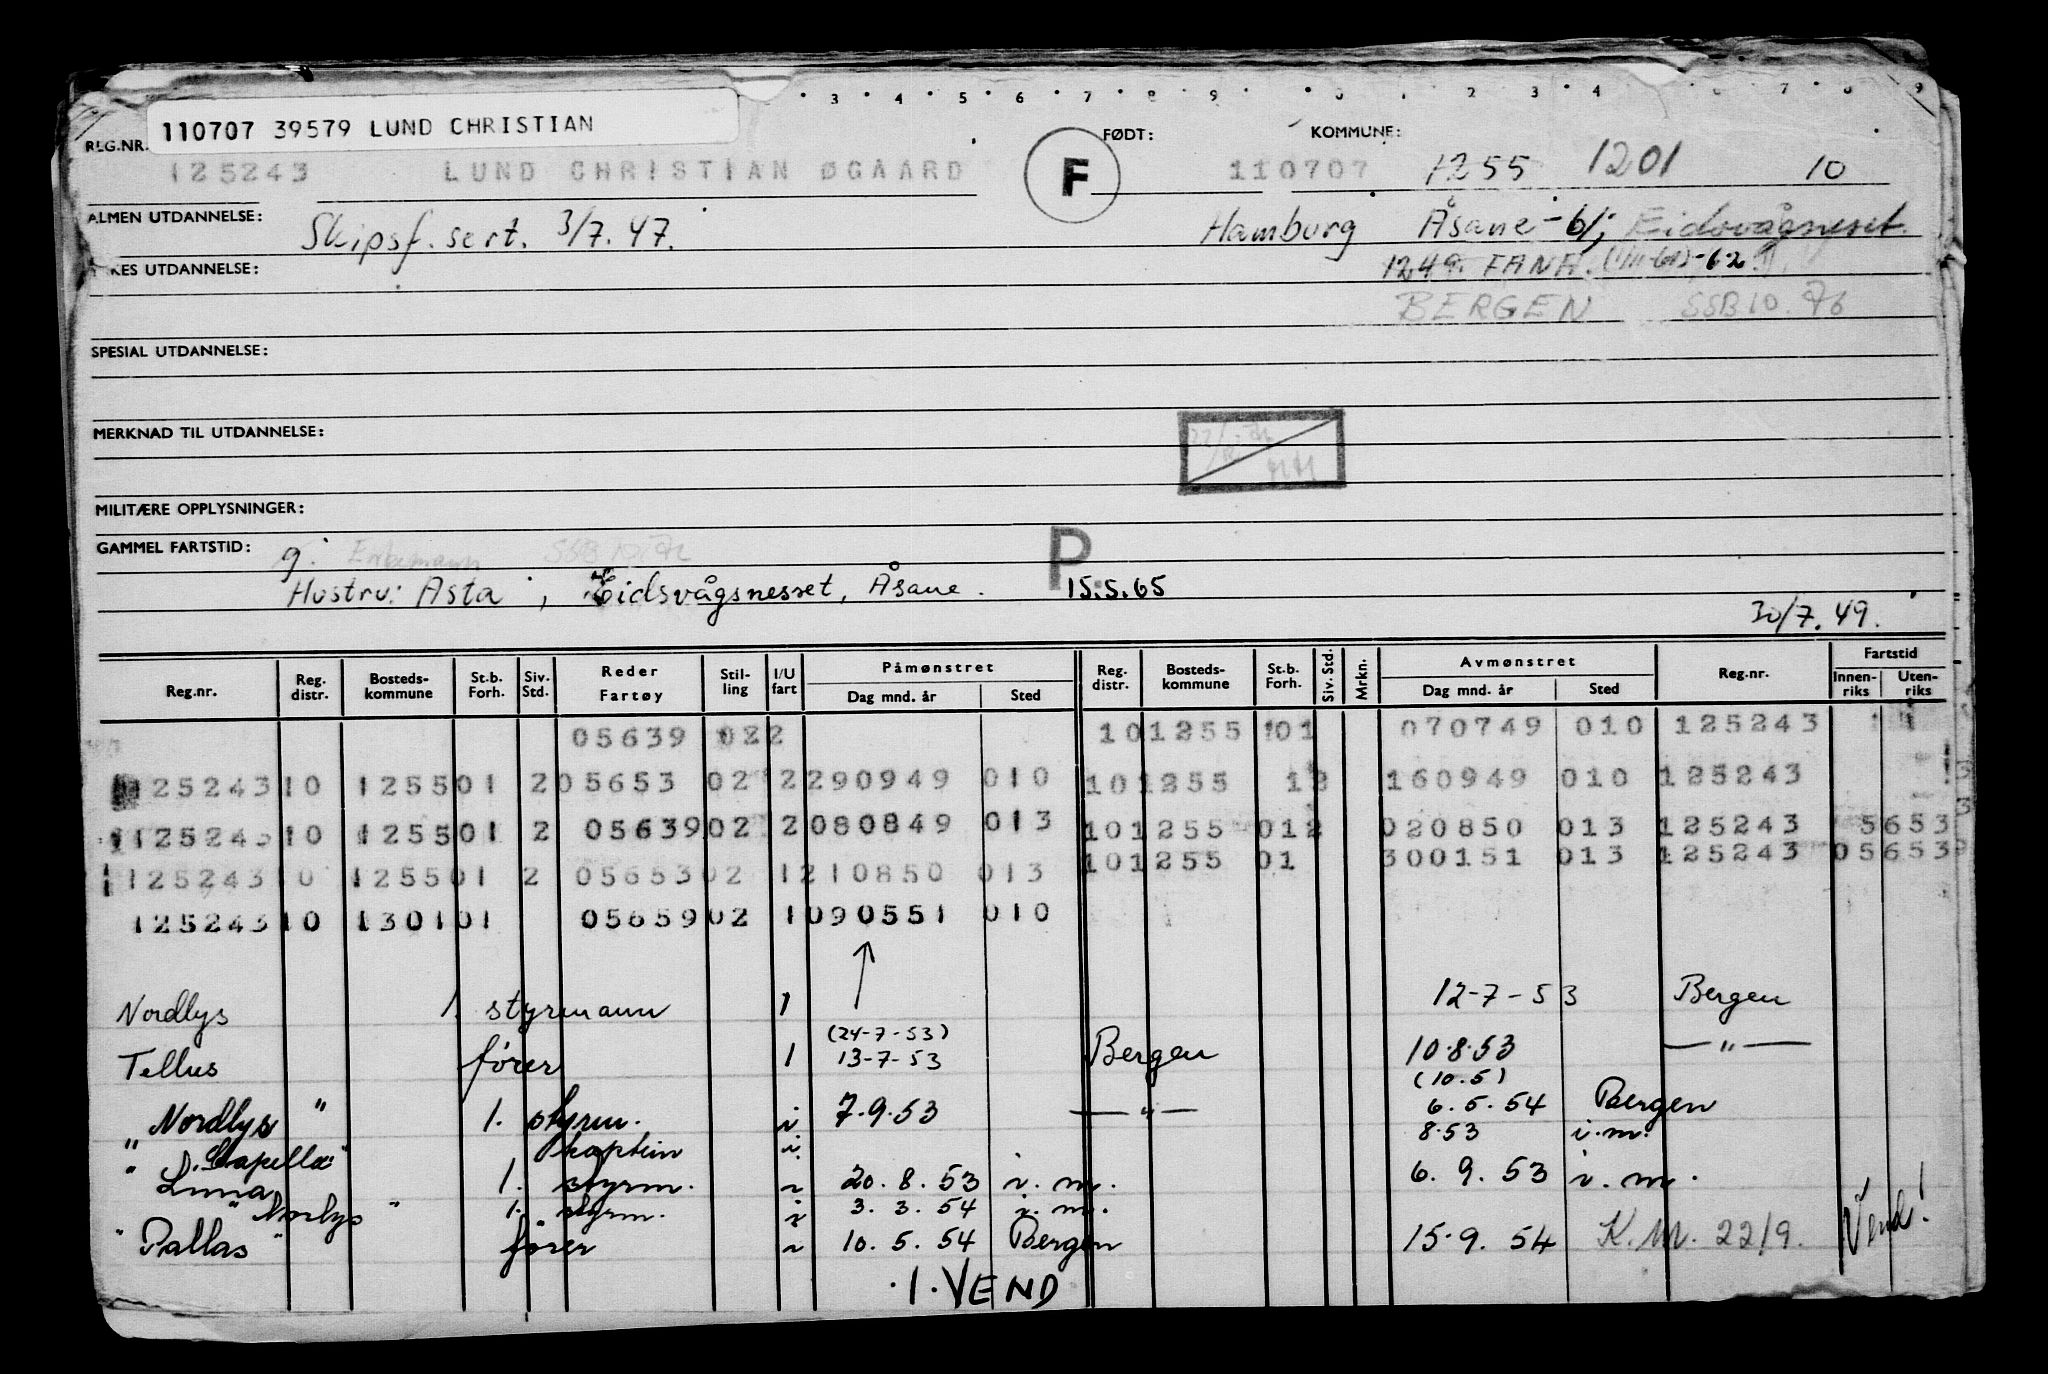 3 4 5 6 7 8 9 0 1 2 3 4 6 7 8 9
110707 39579 LUND CHRISTIAN
REG.NR. FØDT: KOMMUNE:
125243 LUND CHRISTIAN ØGAARD F 110707 1255 1201 10
ALMEN UTDANNELSE: Skipsf. sert. 3/7.47. Hamburg Åsane -61; Eidsvågneset.
YRKES UTDANNELSE: 1249. FANA. -62
BERGEN SSB 10. 76
SPESIAL UTDANNELSE:
MERKNAD TIL UTDANNELSE:
MILITÆRE OPPLYSNINGER:
GAMMEL FARTSTID: g. Enkemann P
Hustru: Asta, Eidsvågsnesset, Åsane. 15.5.65
30/7.49.
Reg.nr. Reg. distr. Bosteds-kommune St.b. Forh. Siv. Std. Reder Fartøy Stil-ling I/U fart Påmønstret Dag mnd. år Sted Reg. distr. Bosteds-kommune St.b. Forh. Siv. Std. Mrkn. Avmønstret Dag mnd. år Sted Reg.nr. Fartstid Innen-riks Uten-riks
05639 022 101255 01 070749 010 125243
25243 10 1255 01 2 05653 02 2 290949 010 101255 160949 010 125243
125243 10 1255 01 2 05639 02 2 080849 013 101255 012 020850 013 125243 5653
125243 10 1255 01 2 05653 02 1 210850 013 101255 01 300151 013 125243 05653
125243 10 1301 01 05659 02 1 090551 010
Nordlys 1. styrmann 1 12-7-53 Bergen
(24-7-53)
Tellus fører 1 13-7-53 Bergen 10.8.53 — " —
(10.5)
" Nordlys " 1. styrm. i 7.9.53 — " — 6.5.54 Bergen
" Capella " kaptein i 8.53 i.m.
Luna 1. styrm. i 20.8.53 i.m. 6.9.53 i.m.
" Norlys " 1. styrm. i 3.3.54 i.m.
" Pallas " fører i 10.5.54 Bergen 15.9.54 K.M. 22/9. Vend!
./. VEND